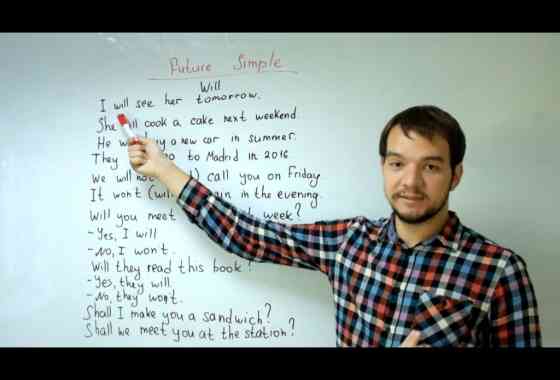 Future Simple
Will
I will see her tomorrow.
She will cook a cake next weekend
He buy a new car in summer.
They to Madrid in 2016
We will not call you on Friday
It wont (will in the evening.
Will you meet week?
- Yes, I will
- No, I won't.
Will they read this book?
- Yes, they will.
- No, they won't.
Shall I make you a sandwich?
Shall we meet you at the station?